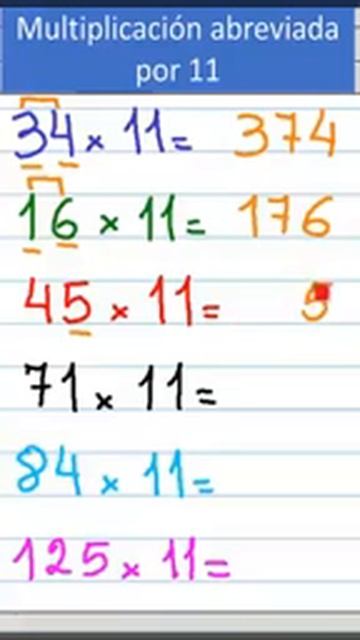 Multiplicación abreviada
por 11
34 x 11 = 374
16 x 11 = 176
45 x 11 = 5
71 x 11 =
84 x 11 =
125 x 11 =